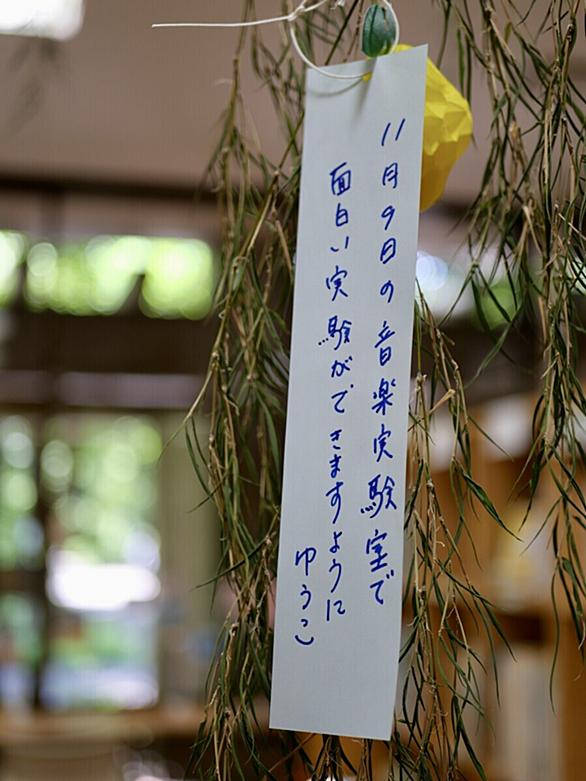 11月9日の音楽実験室で
面白い実験ができますように
ゆうこ